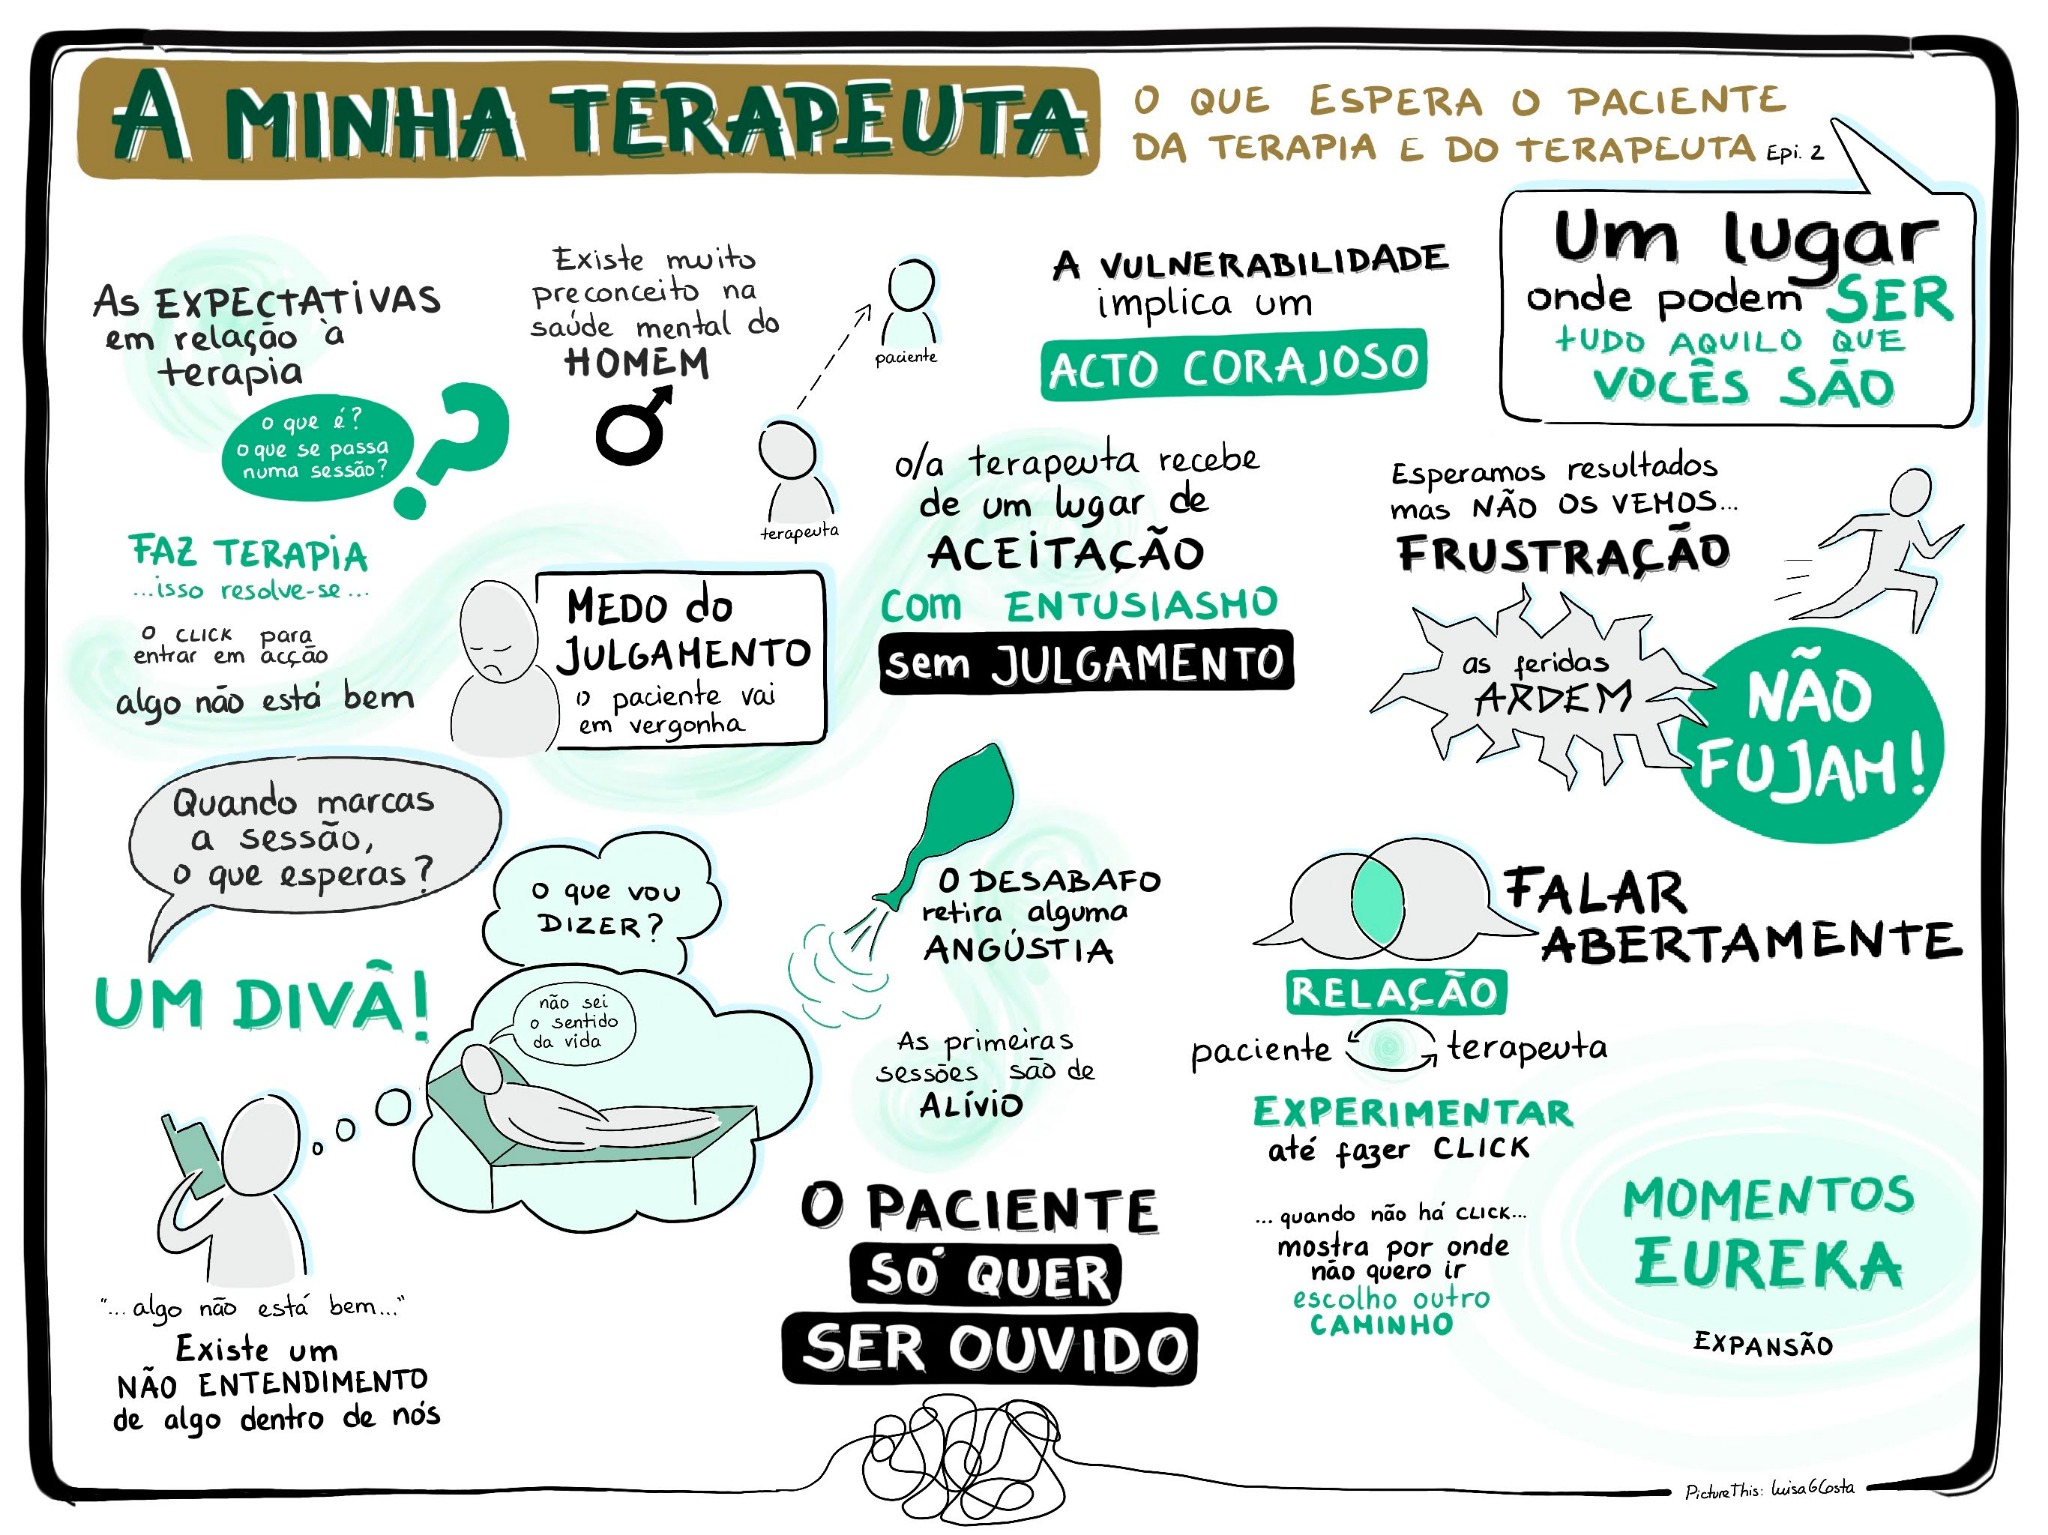 A MINHA TERAPEUTA
O QUE ESPERA O PACIENTE
DA TERAPIA E DO TERAPEUTA Epi. 2
Um lugar
onde podem SER
tUDO AQUILO QUE
VOCÊS SÃO
As EXPECTATIVAS
em relação à
terapia
o que é?
o que se passa
numa sessão?
?
FAZ TERAPIA
...isso resolve-se...
O CLICK para
entrar em acção
algo não está bem
Existe muito
preconceito na
saúde mental do
HOMEM
paciente
terapeuta
MEDO do
JULGAMENTO
o paciente vai
em vergonha
A VULNERABILIDADE
implica um
ACTO CORAJOSO
o/a terapeuta recebe
de um lugar de
ACEITAÇÃO
com ENTUSIASMO
sem JULGAMENTO
Esperamos resultados
mas NÃO OS VEMOS...
FRUSTRAÇÃO
as feridas
ARDEM
NÃO
FUJAM!
Quando marcas
a sessão,
o que esperas?
UM DIVÃ!
O que vou
DIZER?
não sei
o sentido
da vida
"...algo não está bem..."
Existe um
NÃO ENTENDIMENTO
de algo dentro de nós
O DESABAFO
retira alguma
ANGÚSTIA
As primeiras
sessões são de
ALÍVIO
O PACIENTE
SÓ QUER
SER OUVIDO
FALAR
ABERTAMENTE
RELAÇÃO
paciente terapeuta
EXPERIMENTAR
até fazer CLICK
...quando não há CLICK...
mostra por onde
não quero ir
escolho outro
CAMINHO
MOMENTOS
EUREKA
EXPANSÃO
PictureThis: LuisaGCosta